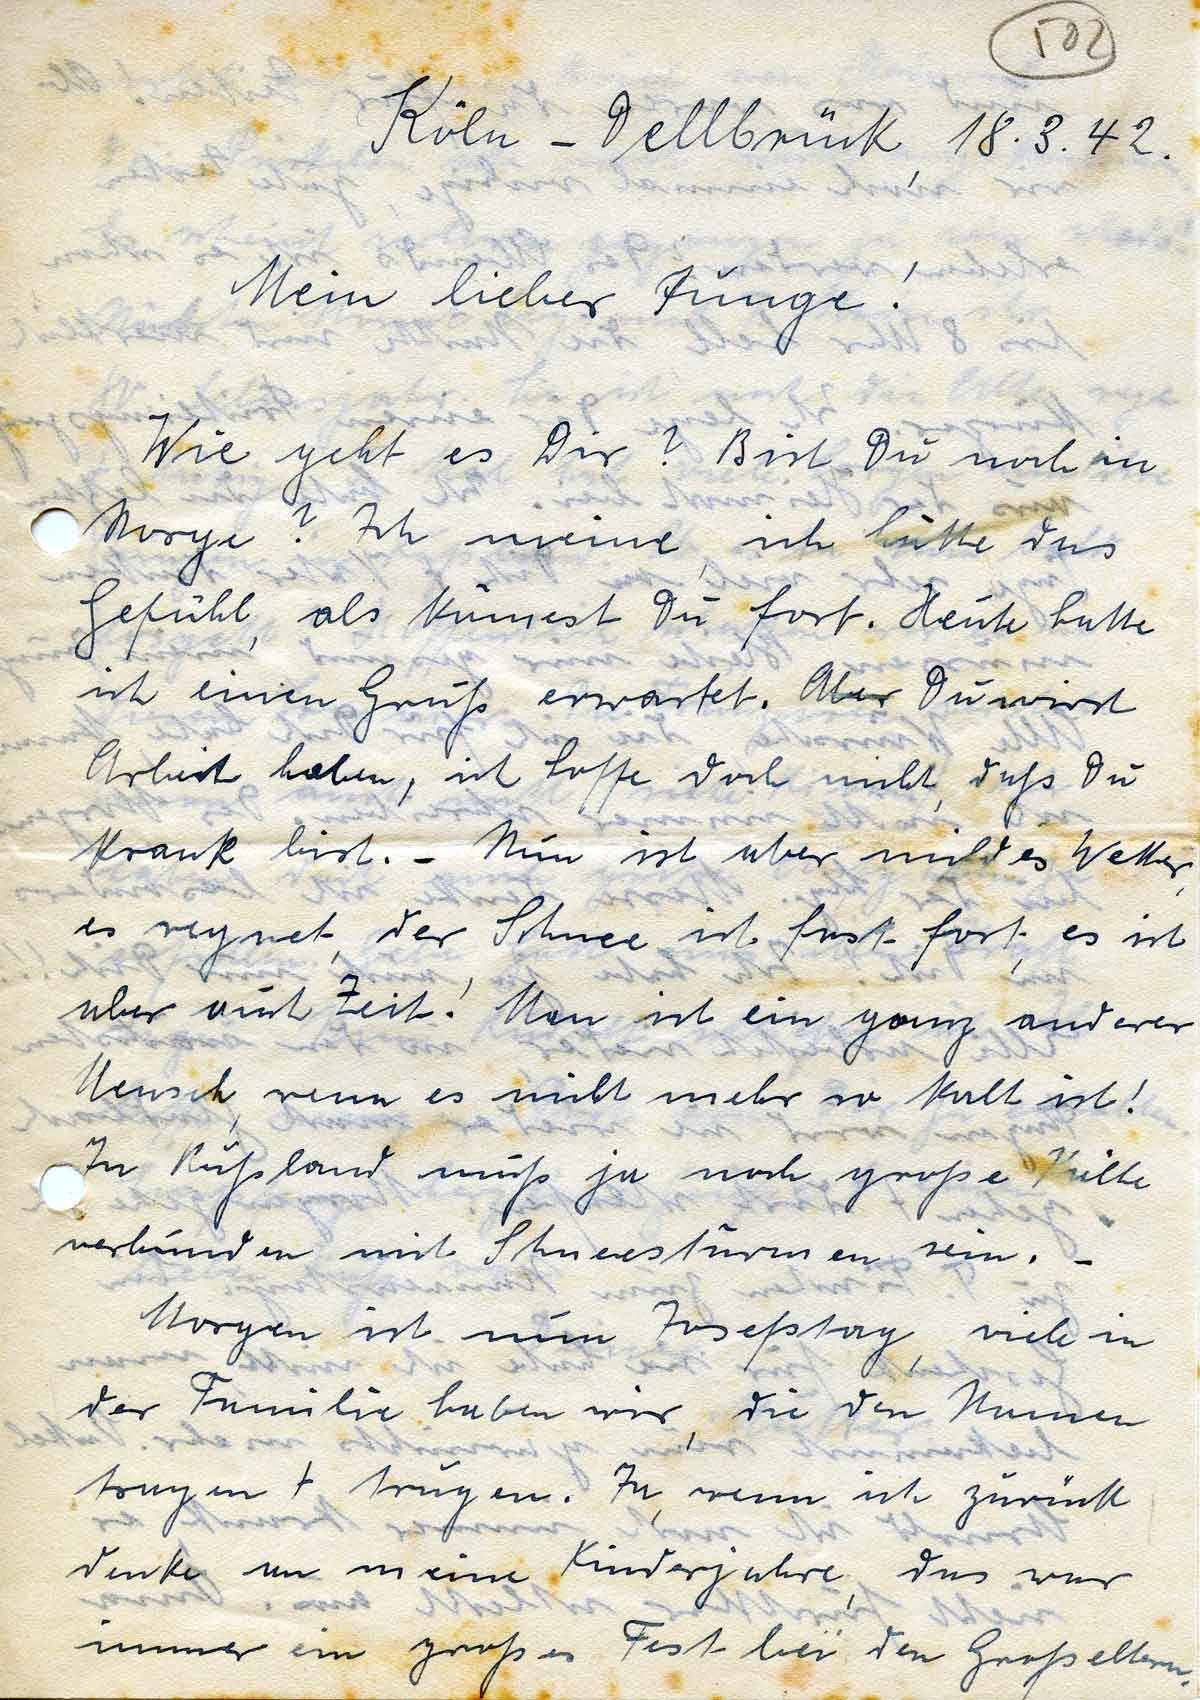 502
Köln - Dellbrück, 18.3.42.
Mein lieber Junge!
Wie geht es Dir? Bist Du noch in
Norge? Ich meine, ich hätte das
Gefühl, als kämest Du fort. Heute hatte
ich einen Gruß erwartet. Aber Du wirst
Arbeit haben, ich hoffe doch nicht, daß Du
krank bist. - Nun ist aber mildes Wetter,
es regnet, der Schnee ist fast fort, es ist
aber auch Zeit! Man ist ein ganz anderer
Mensch, wenn es nicht mehr so kalt ist!
In Rußland muß ja noch große Kälte
verbunden mit Schneestürmen sein. -
Morgen ist nun Josefstag, viele in
der Familie haben wir, die den Namen
tragen + trugen. Ja, wenn ich zurück
denke an meine Kinderjahre, das war
immer ein großes Fest bei den Großeltern.